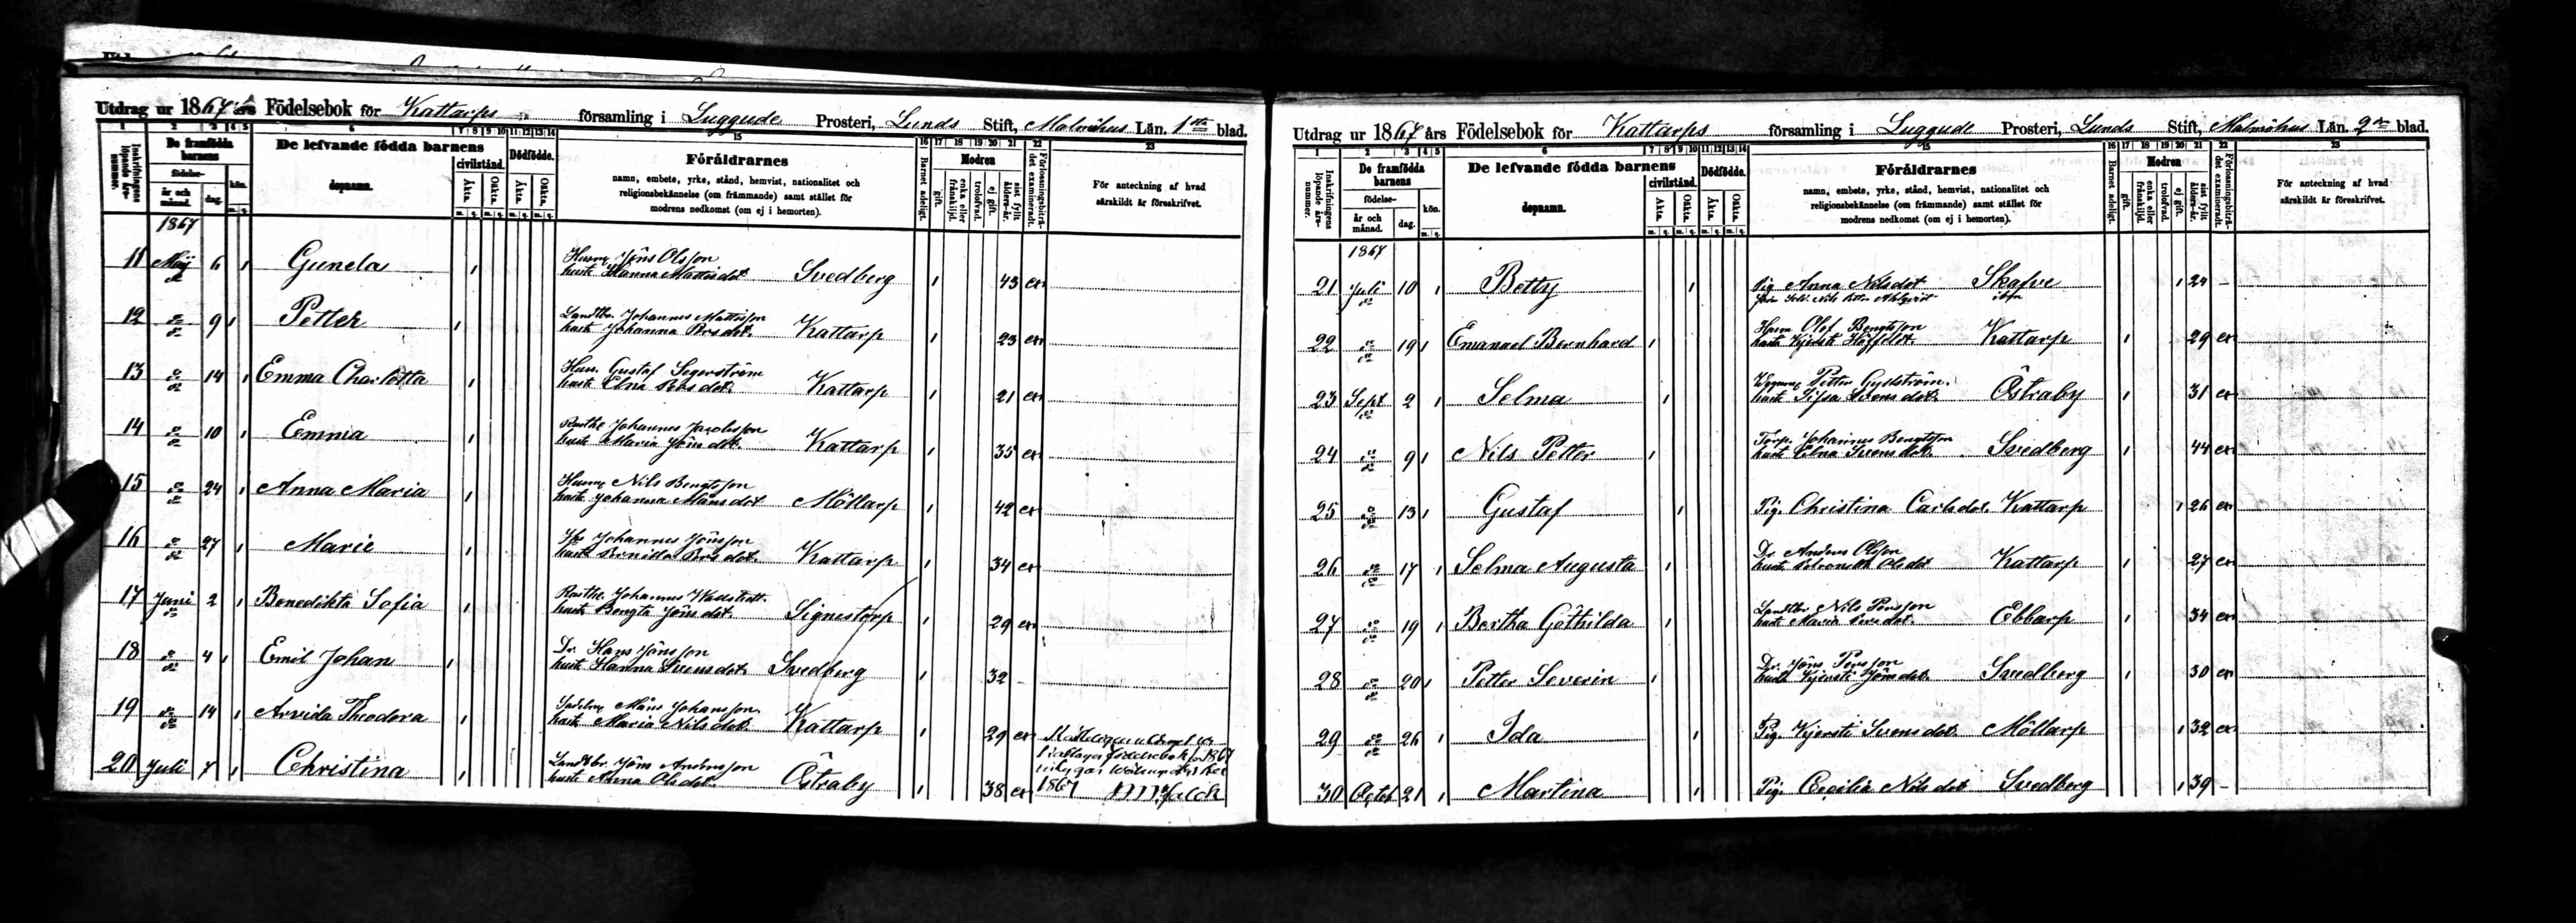 Utdrag ur 1867 års Födelsebok för Kattarps församling i Luggude Prosteri, Lunds Stift, Malmöhus Län. 1sta blad.
1 2 3 4 5 6 7 8 9 10 11 12 13 14 15 16 17 18 19 20 21 22 23
Inskrifningens löpande års-nummer.
De framfödda barnens
födelse-
år och månad.
dag.
kön.
m. q.
De lefvande födda barnens
dopnamn.
civilstånd.
Äkta. Oäkta.
Dödfödde.
Äkta. Oäkta.
Föräldrarnes
namn, embete, yrke, stånd, hemvist, nationalitet och
religionsbekännelse (om främmande) samt stället för
modrens nedkomst (om ej i hemorten).
Barnet adeligt.
Modren
gift.
enka eller frånskild.
trolofvad.
ej gift.
sist fylt ålders-år.
Förlossningsbiträdet examineradt.
För anteckning af hvad
särskildt är föreskrifvet.
1867
11 Maj 6 1 Gunela 1 Husm Jöns Olsson
hust. Hanna Mattisdot. Svedberg 1 43 ex
12 do 9 1 Petter 1 Landtbr. Johannes Mattisson
hust. Johanna Persdot. Kattarp 1 23 ex
13 do 14 1 Emma Charlotta 1 Hus. Gustaf Segerström
hust. Elna Persdot. Kattarp 1 21 ex
14 do 10 1 Emma 1 Johannes Jacobsson
hust. Maria Jönsdot. Kattarp 1 35 ex
15 do 24 1 Anna Maria 1 Husm Nils Bengtsson
hust. Johanna Månsdot Möllarp 1 42 ex
16 do 27 1 Marie 1 Johannes Jönsson
hust. Persdot. Kattarp 1 34 ex
17 Juni 2 1 Benedikta Sofia 1 Johannes
hust. Bengta Jönsdot. Signestorp 1 29 ex
18 do 4 1 Emil Johan 1 Dr. Hans Jönsson
hust. Hanna Svensdot. Svedberg 1 32 -
19 do 14 1 Arvida Theodora 1 Måns Johansson
hust. Maria Nilsdot. Kattarp 1 29 ex
20 Juli 7 1 Christina 1 Landtbr. Jöns Andersson
hust. Anna Olsdot. Östraby 1 38 ex
födelsebok för 1867
1867
Utdrag ur 1867 års Födelsebok för Kattarps församling i Luggude Prosteri, Lunds Stift, Malmöhus Län. 2dra blad.
1 2 3 4 5 6 7 8 9 10 11 12 13 14 15 16 17 18 19 20 21 22 23
Inskrifningens löpande års-nummer.
De framfödda barnens
födelse-
år och månad.
dag.
kön.
m. q.
De lefvande födda barnens
dopnamn.
civilstånd.
Äkta. Oäkta.
Dödfödde.
Äkta. Oäkta.
Föräldrarnes
namn, embete, yrke, stånd, hemvist, nationalitet och
religionsbekännelse (om främmande) samt stället för
modrens nedkomst (om ej i hemorten).
Barnet adeligt.
Modren
gift.
enka eller frånskild.
trolofvad.
ej gift.
sist fylt ålders-år.
Förlossningsbiträdet examineradt.
För anteckning af hvad
särskildt är föreskrifvet.
1867
21 Juli 10 1 Betty 1 Pig. Anna Nilsdot Skafve
Nils Petter Ahlqvist 1 24 -
22 do 19 1 Emanuel Bernhard 1 Husm. Olof Bengtsson
hust. Kjersti Kattarp 1 29 ex
23 Sept 2 1 Selma 1 Petter Gyllström.
hust. Sissa Svensdot. Östraby 1 31 ex
24 do 9 1 Nils Petter 1 Torp. Johannes Bengtsson
hust. Elna Svensdot. Svedberg 1 44 ex
25 do 13 1 Gustaf 1 Pig. Christina Carlsdot. Kattarp 1 26 ex
26 do 17 1 Selma Augusta 1 Dr. Anders Olsson
hust. Petronella Olsdot Kattarp 1 27 ex
27 do 19 1 Bertha Göthilda 1 Landtbr. Nils Persson
hust. Maria Persdot. Ebbarp 1 34 ex
28 do 20 1 Petter Severin 1 Dr. Jöns Persson
hust. Kjersti Jönsdot. Svedberg 1 30 ex
29 do 26 1 Ida 1 Pig. Kjersti Svensdot. Möllarp 1 32 ex
30 Octob 21 1 Martina 1 Pig. Cecilia Nilsdot Svedberg 1 39 -